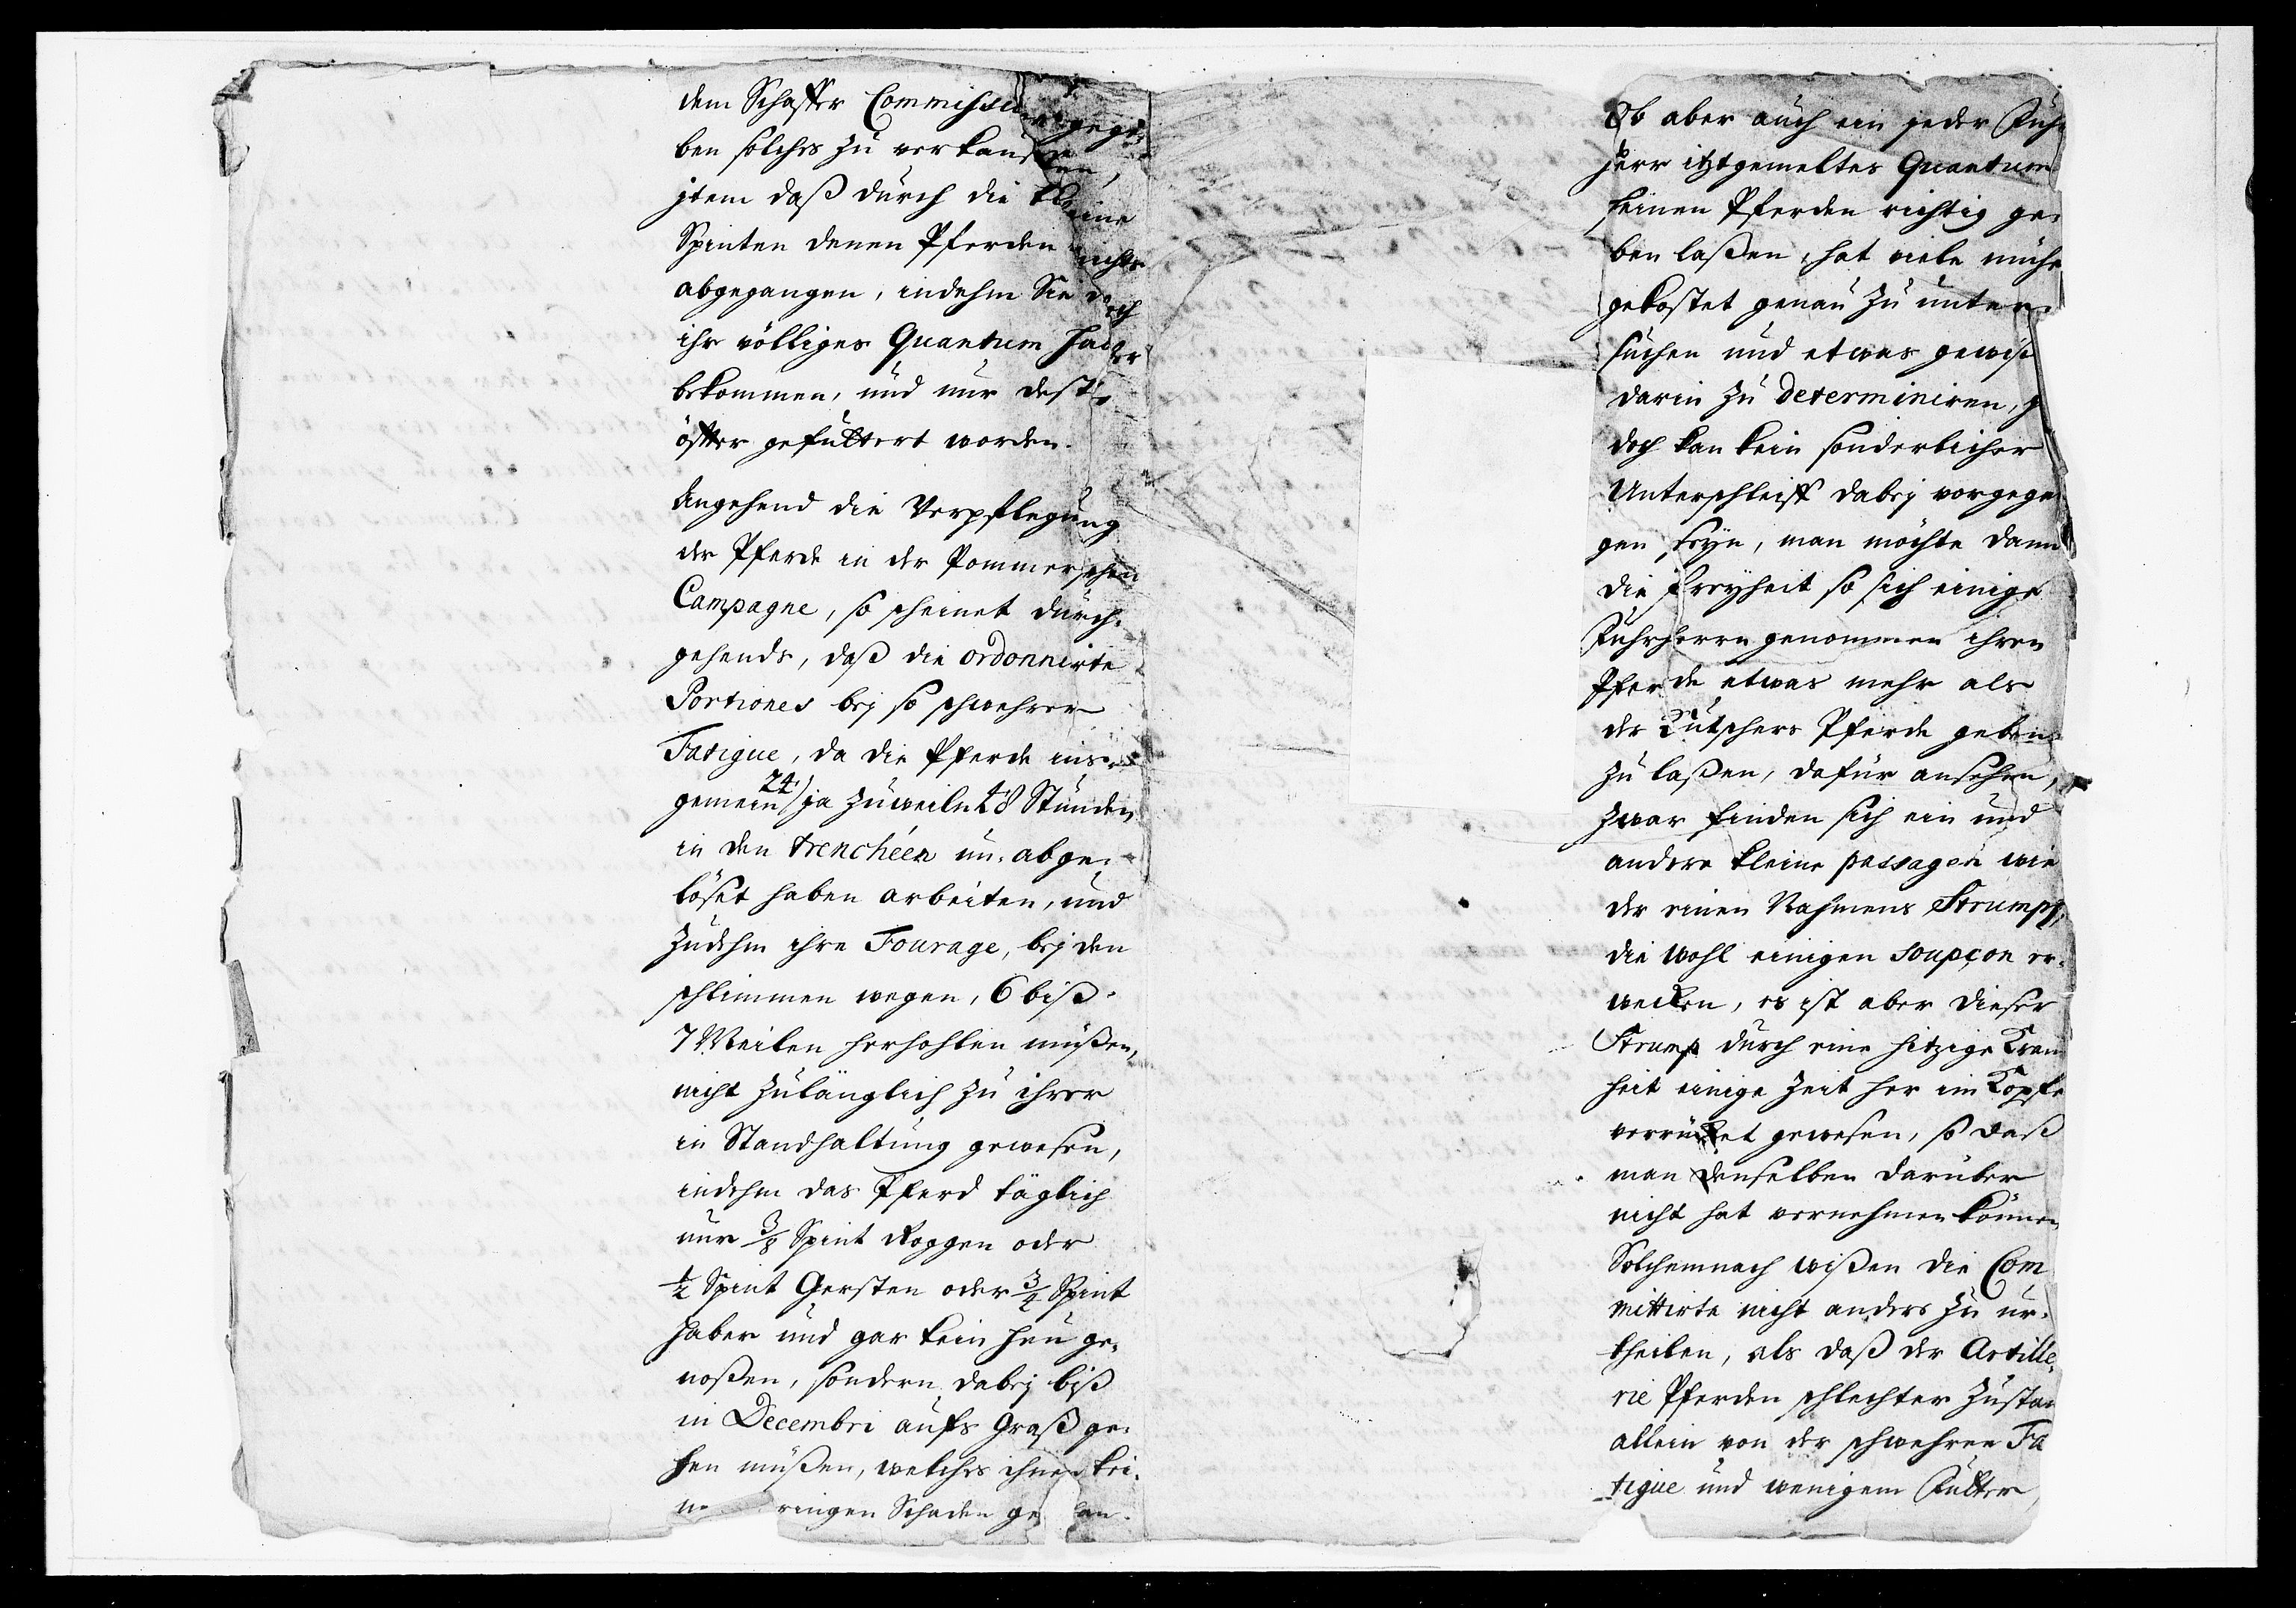 dem Schaffer Commission gege-
ben solches zu verkauffen,
jtem daß durch die kleine
Spinten denen Pferden nichts
abgegangen, indehm Sie doch
ihr völliges Quantum haber
bekommen, und nur desto
öffter gefüttert worden.
Angehend die Verpflegung
der Pferde in der Pommerschen
Campagne, so scheinet durch-
gehends, daß die ordonnirte
Portiones bej so schwehrer
Fatigue, da die Pferde ins-
gemein 24 ja zuweiln 48 Stunden
in den trenchéen un-abge-
löset haben arbeiten, und
zudehm ihre Fourage, bej den
schlimmen wegen, 6 biß
7 Meilen herhohlen müßen,
nicht zulänglich zu ihrer
in Standhaltung gewesen,
indehm das Pferd täglich
nur 3/8 Spint Roggen oder
1/2 Spint Gersten oder 3/4 Spint
haber und gar kein heu ge-
noßen, sondern dabej biß
in Decembri aufs Graß ge-
hen müßen, welches ihnen kei-
ringen Schaden
Ob aber auch ein jeder Fuhr
herr itztgemeltes Quantum
seinen Pferden richtig ge-
ben laßen, hat viele mühe
gekostet genau zu unter-
suchen und etwas gewiß
darin zu determiniren, j
doch kan kein sonderlicher
Unterschleiff dabej vorgegan
gen seyn, man möchte dann
die freyheit so sich einige
Fuhrherrn genommen ihren
Pferde etwas mehr als
der Kutschers Pferde geben
zu laßen, dafür ansehen,
zwar finden sich ein und
andere kleine passagen wie
der einen Nahmens Strumpf,
die wohl einigen soupçon er-
wecken, es ist aber dieser
Strumpf durch eine hitzige Kranck
heit einige Zeit her im Kopfe
verrücket gewesen, so daß
man denselben darüber
nicht hat vernehmen können
Solchemnach wißen die Com
mittirte nicht anders zu ur-
theilen, als daß der Artille-
rie Pferden schlechter Zustan
allein von der schwehren Fa
tigue und wenigem Futter